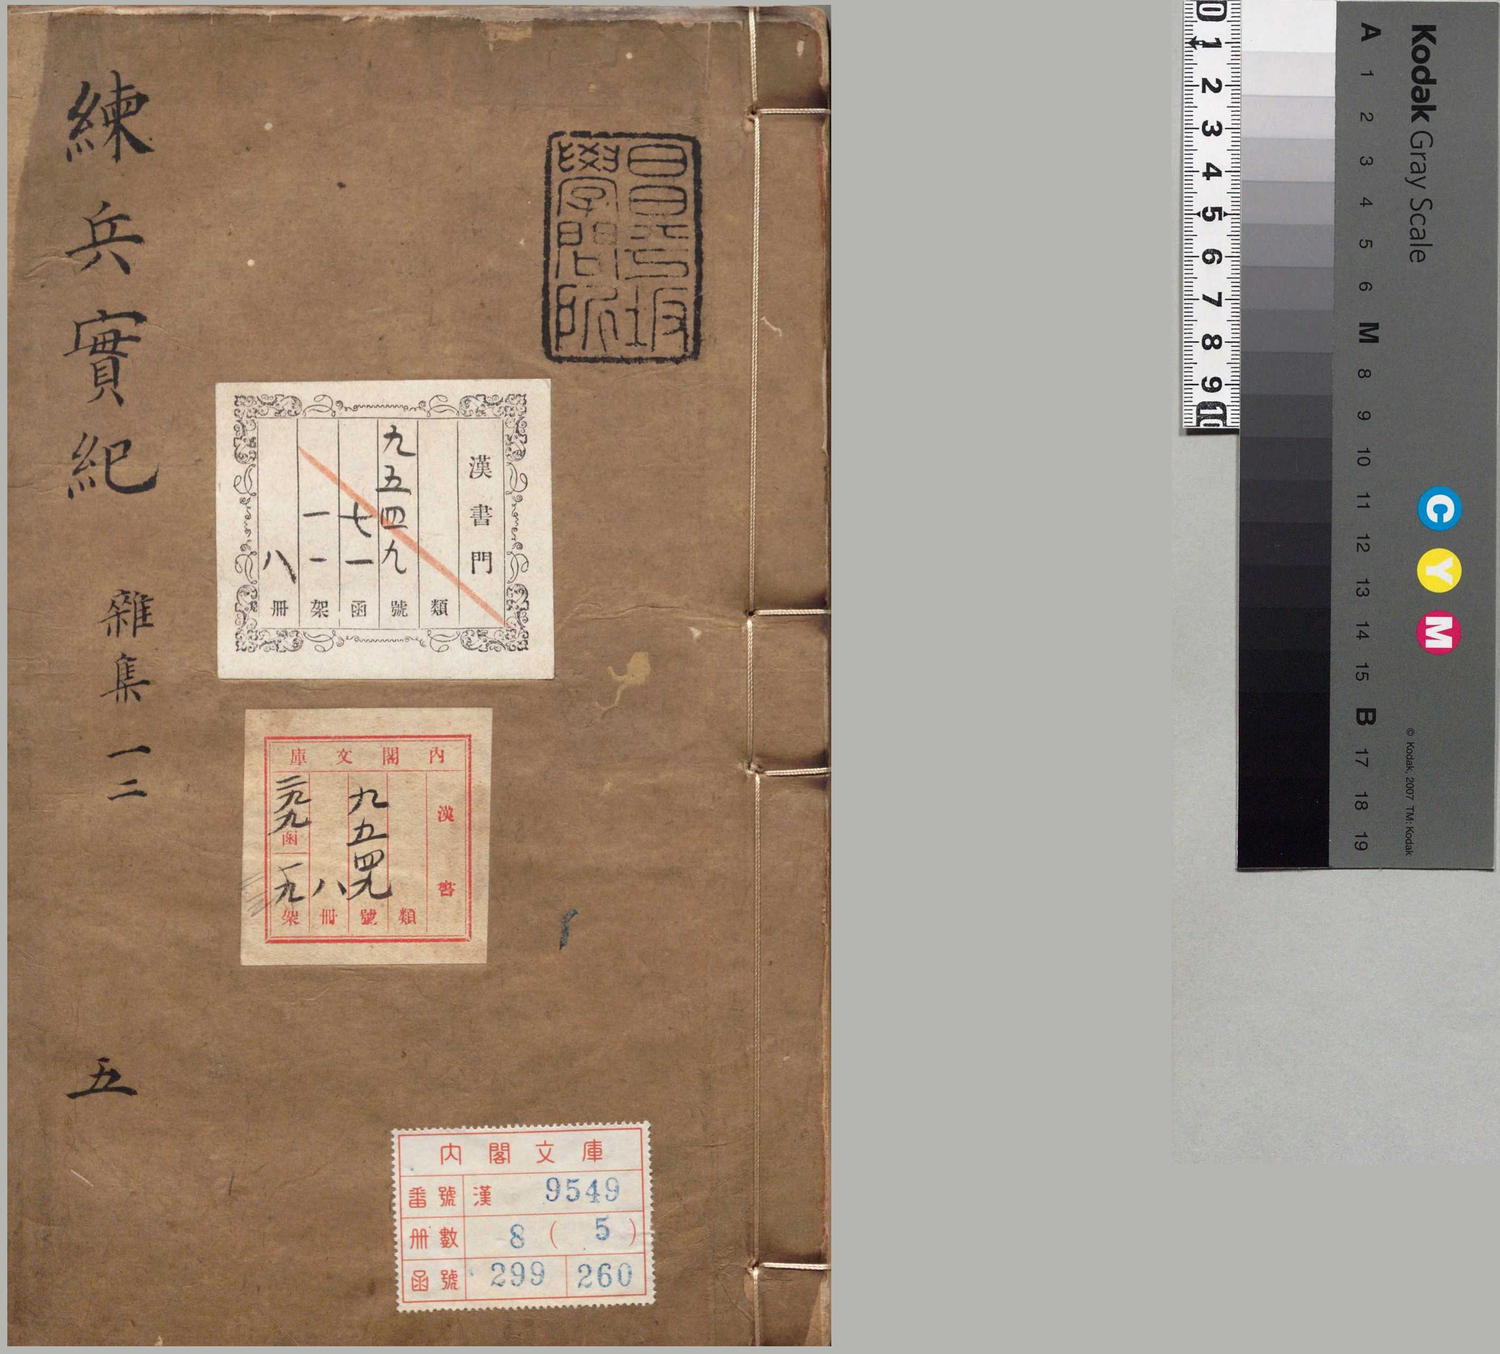 練兵實紀
雜集 一二
五
昌平坂
學問所
漢書門
類
九五四九號
七一函
一一架
八冊
內閣文庫
漢書
類
九五四九號
八冊
二九九函
一九架
內閣文庫
番號 漢 9549
冊數 8 ( 5 )
函號 299 260
0 1 2 3 4 5 6 7 8 9 10
Kodak Gray Scale
A 1 2 3 4 5 6 M 8 9 10 11 12 13 14 15 B 17 18 19
C Y M
© Kodak, 2007 TM: Kodak